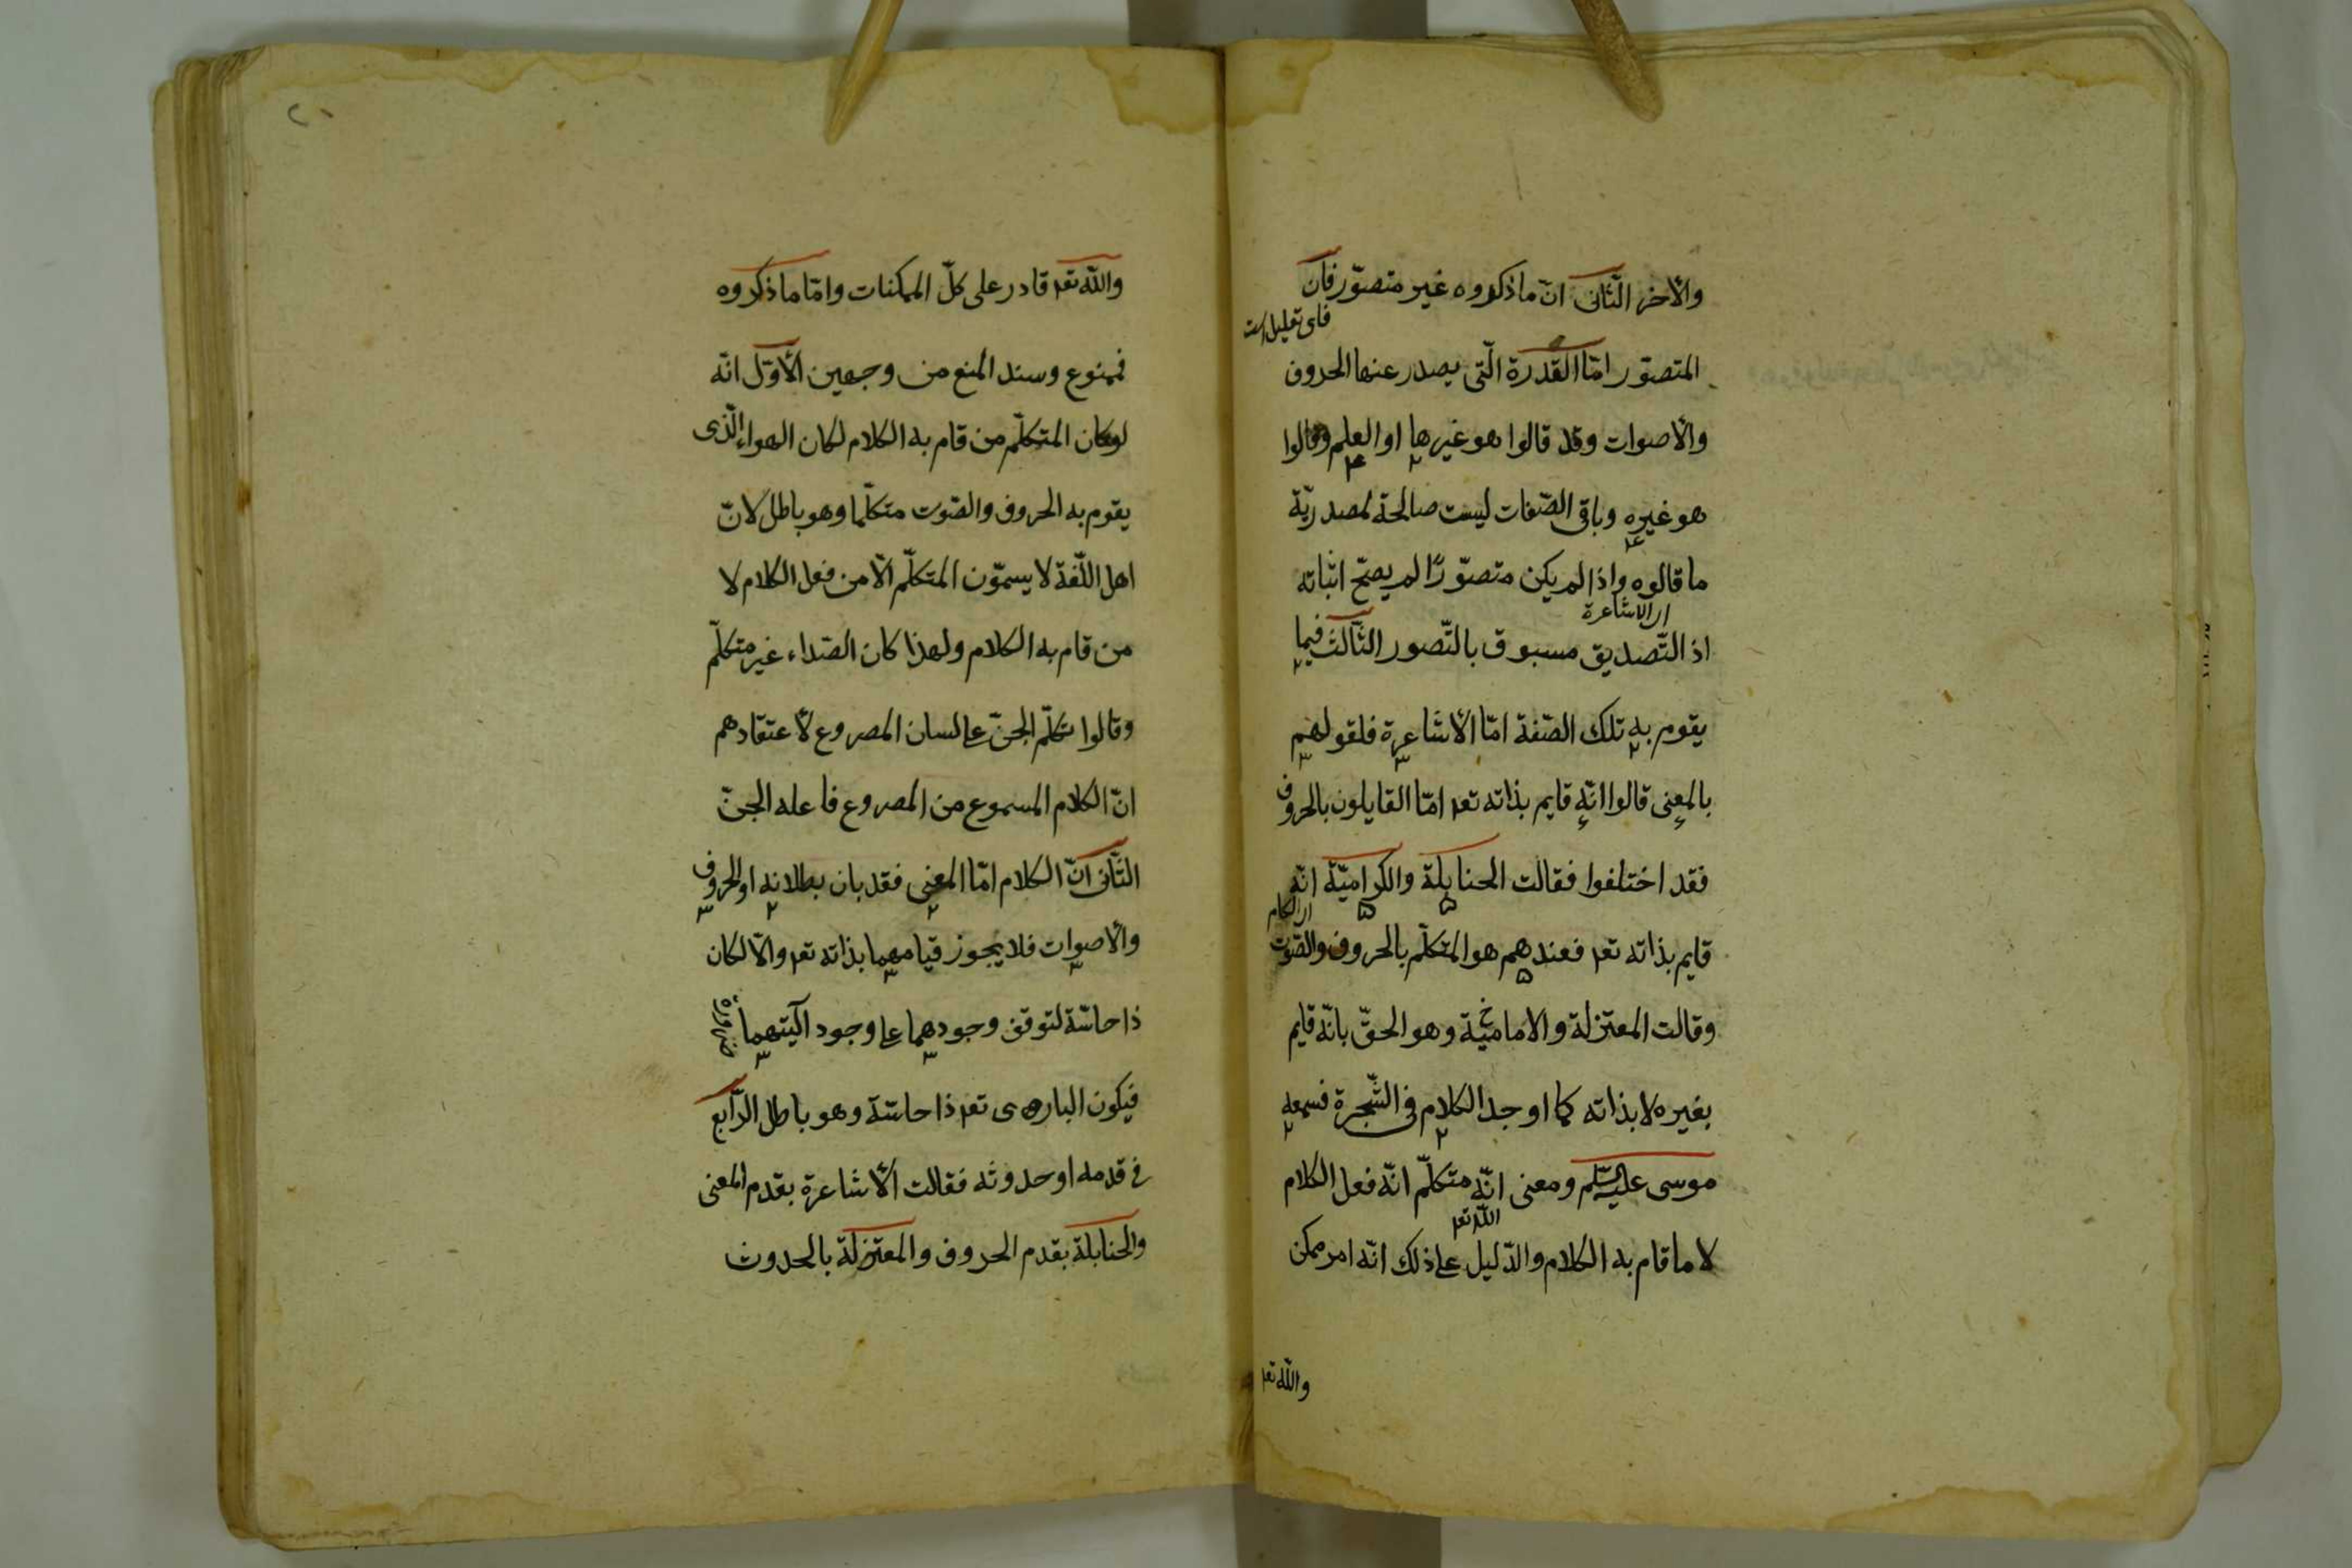 والأخر الثّانى انّ ما ذكروه غير متصوّر فان
فاى تعليل است
المتصوّر امّا القدرة الّتى يصدر عنها الحروف
والأصوات وقد قالوا هو غيرها او العلم وقالوا
هو غيره وباقى الصّفات ليست صالحة لمصدريّة
ما قالوه واذا لم يكن متصوّرًا لم يصحّ اثباته
اى الاشاعرة
اذ التّصديق مسبوق بالتّصور الثّالث فيما
يقوم به تلك الصّفة امّا الأشاعرة فلقولهم
بالمعنى قالوا انّه قايم بذاته تعه امّا القايلون بالحروف
فقد اختلفوا فقالت الحنابلة والكراميّة انّه
اى الكلام
قايم بذاته تعه فعندهم هو المتكلّم بالحروف والصّوت
وقالت المعتزلة والاماميّة وهو الحقّ بانّه قايم
بغيره لا بذاته كما اوجد الكلام فى الشّجرة فسمعه
موسى عليه السّلم ومعنى انّه متكلّم انّه فعل الكلام
الله تعه
لا ما قام به الكلام والدّليل على ذلك انّه امر ممكن
والله تعه
٢١
والله تعه قادر على كلّ الممكنات وامّا ما ذكروه
فممنوع وسند المنع من وجهين الأوّل انّه
لو كان المتكلّم من قام به الكلام لكان الهواء الّذى
يقوم به الحروف والصّوت متكلّما وهو باطل لانّ
اهل اللّغة لا يسمّون المتكلّم الّا من فعل الكلام لا
من قام به الكلام ولهذا كان الصّداء غير متكلّم
وقالوا تكلّم الجنّ على لسان المصروع لأعتقادهم
انّ الكلام المسموع من المصروع فاعله الجنّ
الثّانى انّ الكلام امّا المعنى فقد بان بطلانه او الحروف
والأصوات فلا يجوز قيامهما بذاته تعه والّا لكان
ذا حاسّة لتوقف وجودهما على وجود آليتهما
فيكون البارى تعه ذا حاسّة وهو باطل الرّابع
فى قدمه او حدوثه فقالت الأشاعرة بقدم المعنى
والحنابلة بقدم الحروف والمعتزلة بالحدوث